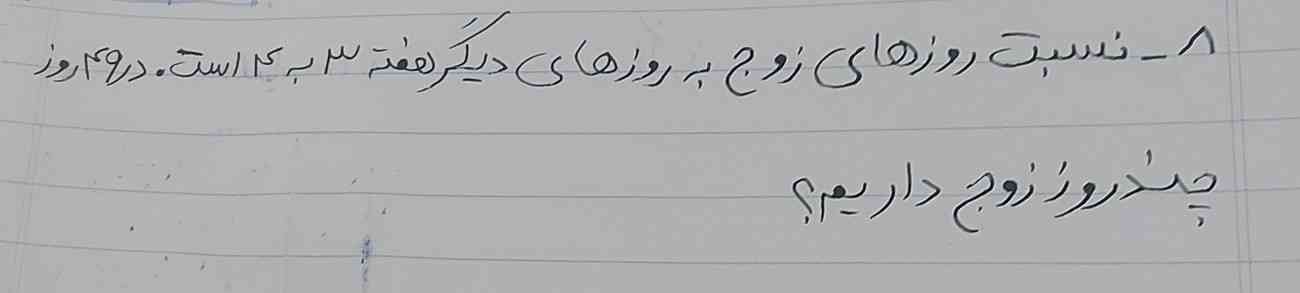 ۸ - نسبت روزهای زوج به روزهای دیگر هفته ۳ به ۴ است. در ۴۹ روز
چند روز زوج داریم؟